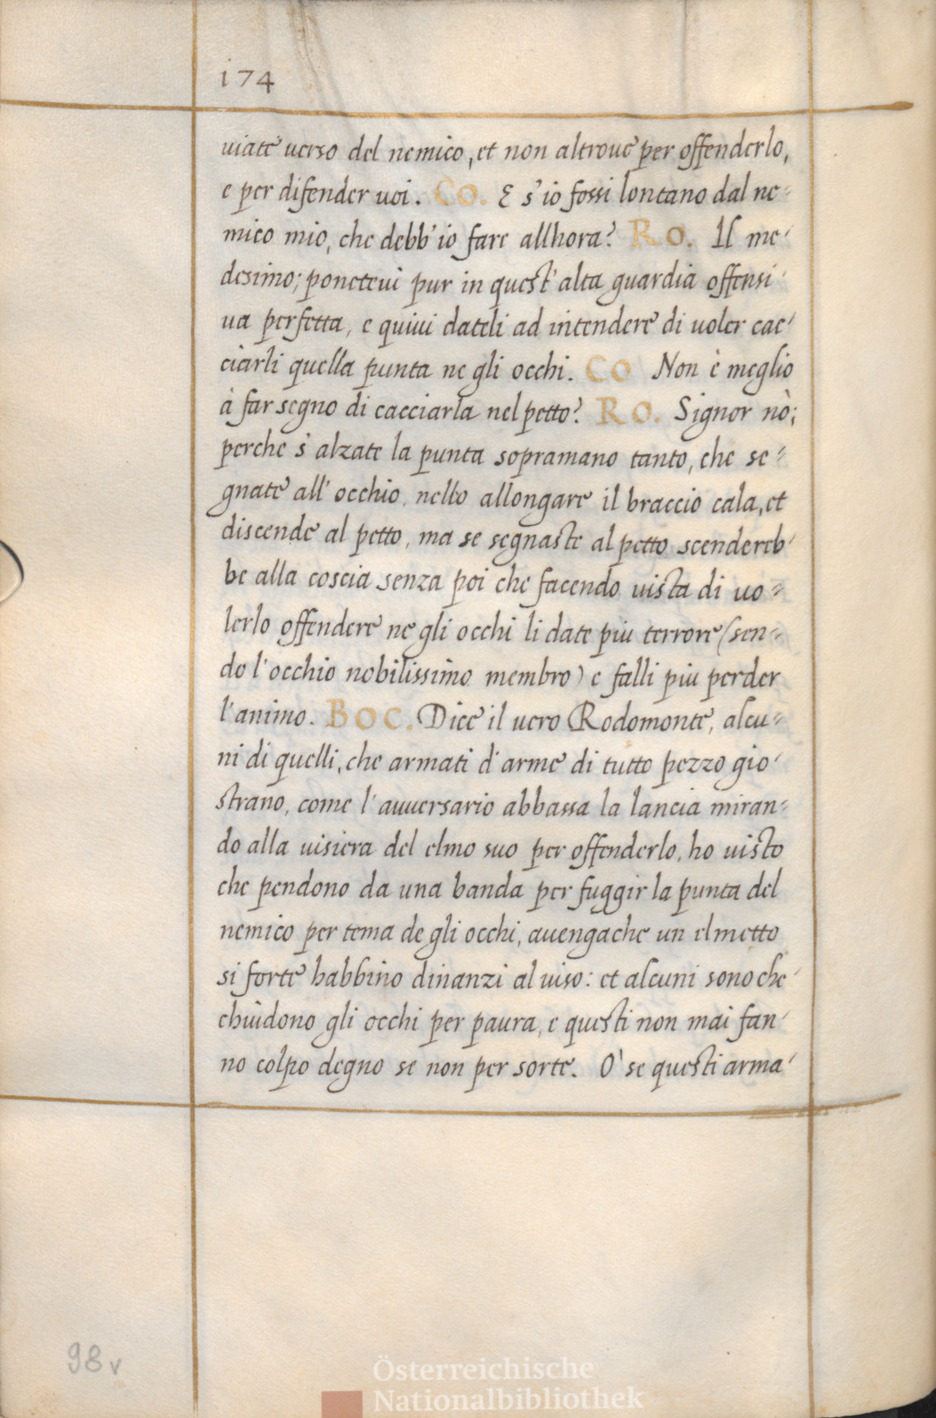 174
uiate uerso del nemico, et non altroue per offenderlo,
e per difender uoi. CO. E s'io fossi lontano dal ne=
mico mio, che debb'io fare allhora? RO. Il me-
desimo; poneteui pur in quest'alta guardia offensi-
ua perfetta, e quiui dateli ad intendere di uoler cac-
ciarli quella punta ne gli occhi. CO Non è meglio
à far segno di cacciarla nel petto? RO. Signor nò;
perche s'alzate la punta sopramano tanto, che se=
gnate all'occhio, nello allongare il braccio cala, et
discende al petto, ma se segnaste al petto scendereb-
be alla coscia senza poi che facendo uista di uo=
lerlo offendere ne gli occhi li date piu terrore (sen=
do l'occhio nobilissimo membro) e falli piu perder
l'animo. BOC. Dice il uero Rodomonte, alcu=
ni di quelli, che armati d'arme di tutto pezzo gio-
strano, come l'auuersario abbassa la lancia miran=
do alla uisiera del elmo suo per offenderlo, ho uisto
che pendono da una banda per fuggir la punta del
nemico per tema de gli occhi, auengache un elmetto
si forte habbino dinanzi al uiso: et alcuni sono che-
chiudono gli occhi per paura, e questi non mai fan-
no colpo degno se non per sorte. O' se questi arma-
98v
Österreichische
Nationalbibliothek